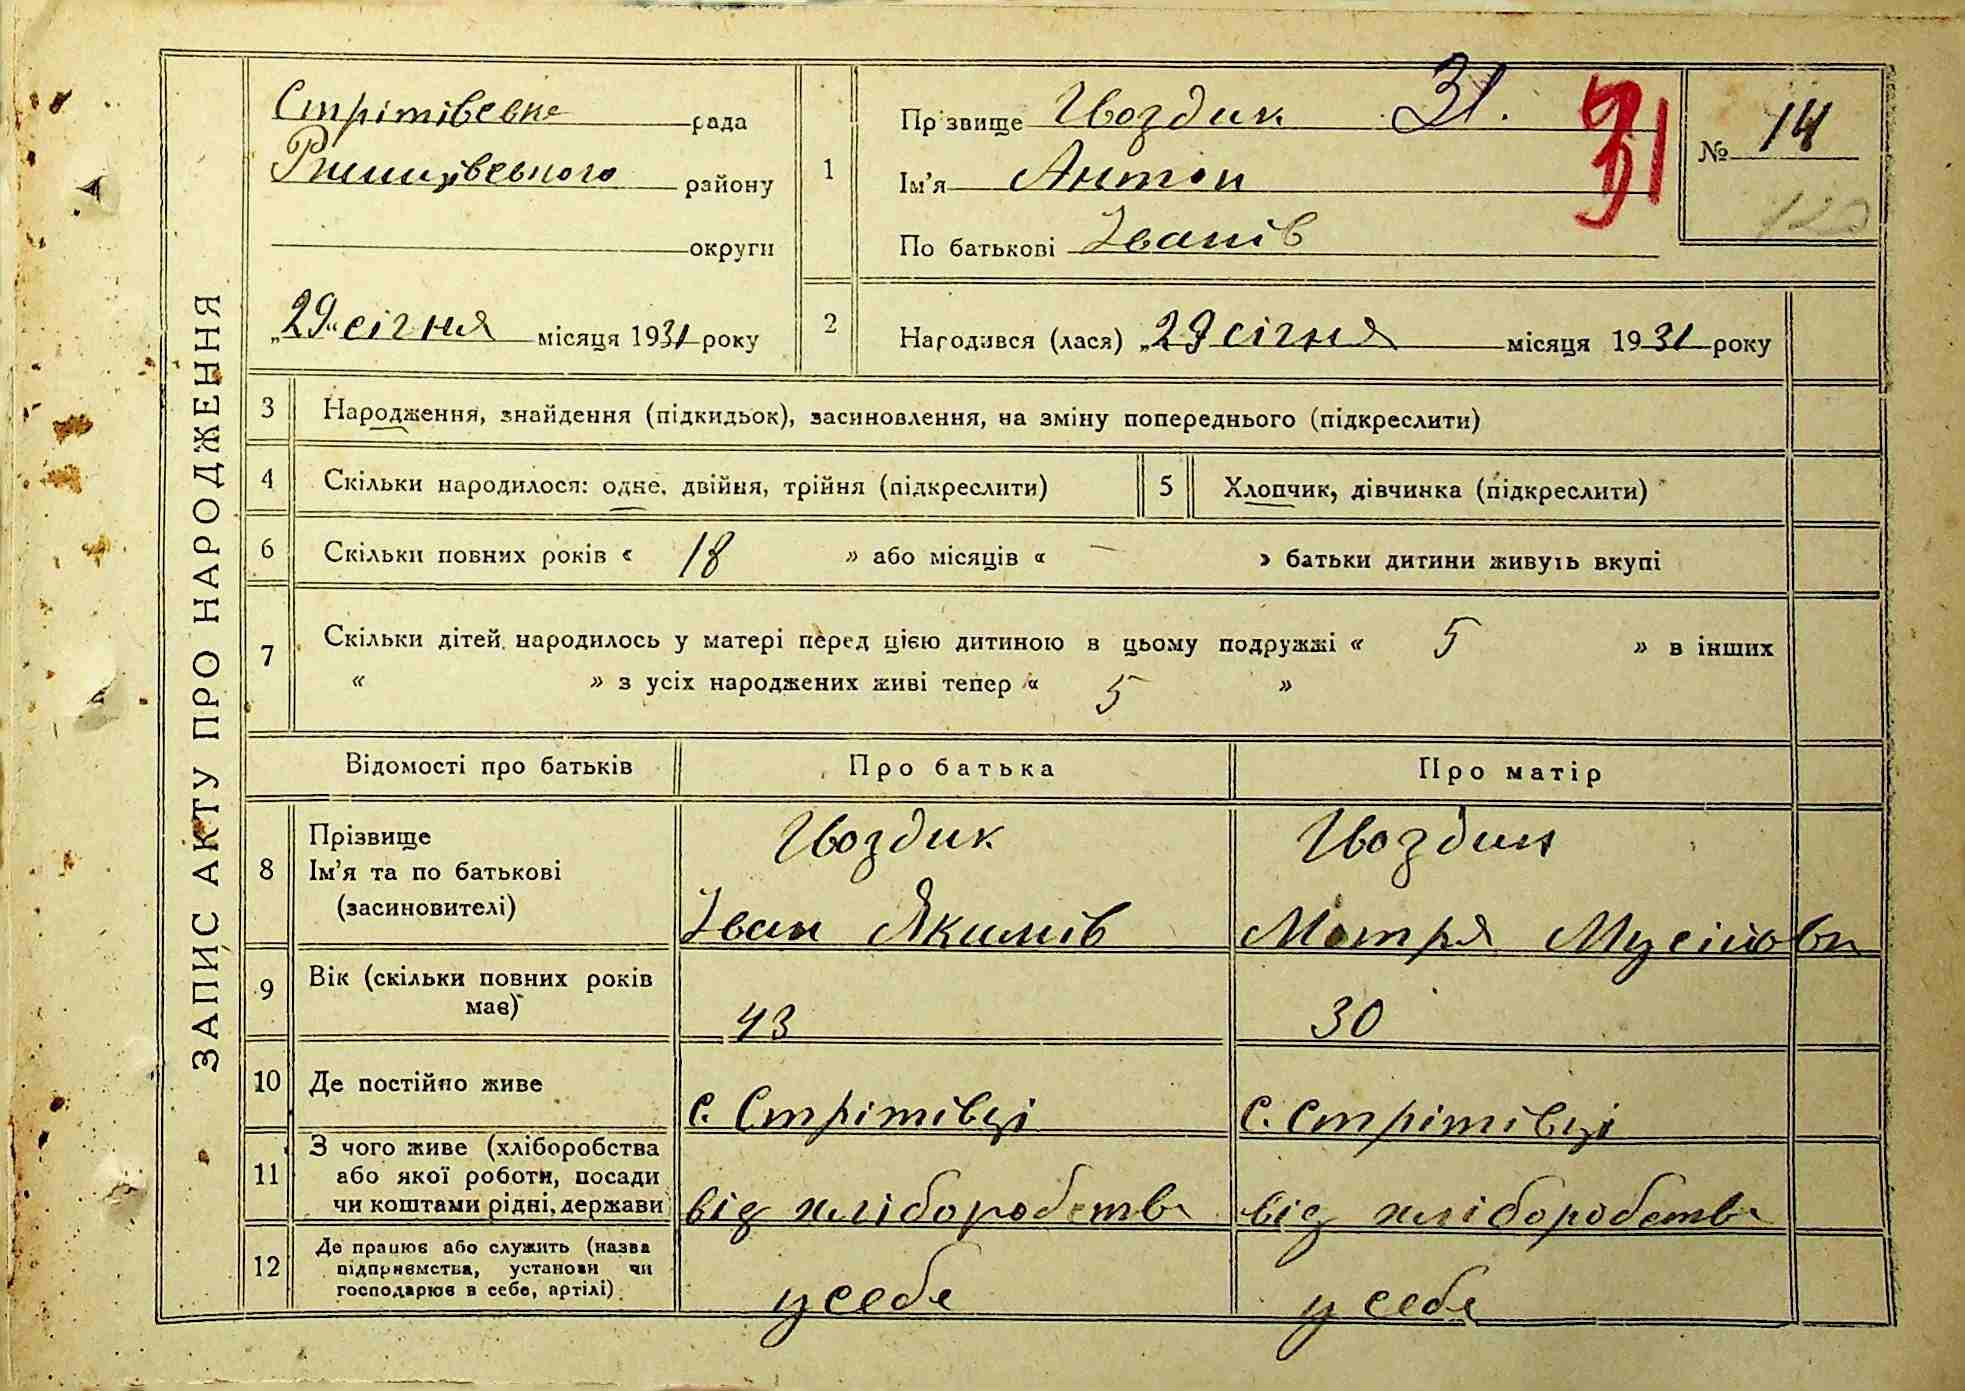 ЗАПИС АКТУ ПРО НАРОДЖЕННЯ
Стрітівська рада
Ржищівського району
округи
„29“ січня місяця 1931 року
1
Прізвище Гвоздик 31.
Ім'я Антон
По батькові Іванів
31
№ 14
120
2
Народився (лася) „29 січня місяця 1931 року
3 Народження, знайдення (підкидьок), засиновлення, на зміну попереднього (підкреслити)
4 Скільки народилося: одне, двійня, трійня (підкреслити) 5 Хлопчик, дівчинка (підкреслити)
6 Скільки повних років « 18 » або місяців « — » батьки дитини живуть вкупі
7 Скільки дітей народилось у матері перед цією дитиною в цьому подружжі « 5 » в інших
« » з усіх народжених живі тепер « 5 »
Відомості про батьків Про батька Про матір
8 Прізвище Гвоздик Гвоздик
Ім'я та по батькові
(засиновителі) Іван Якимів Мотря Мусійова
9 Вік (скільки повних років
має) 43 30
10 Де постійно живе с. Стрітівці с. Стрітівці
11 З чого живе (хліборобства
або якої роботи, посади
чи коштами рідні, держави від хліборобства від хліборобства
12 Де працює або служить (назва
підприємства, установи чи
господарює в себе, артілі) у себе у себе